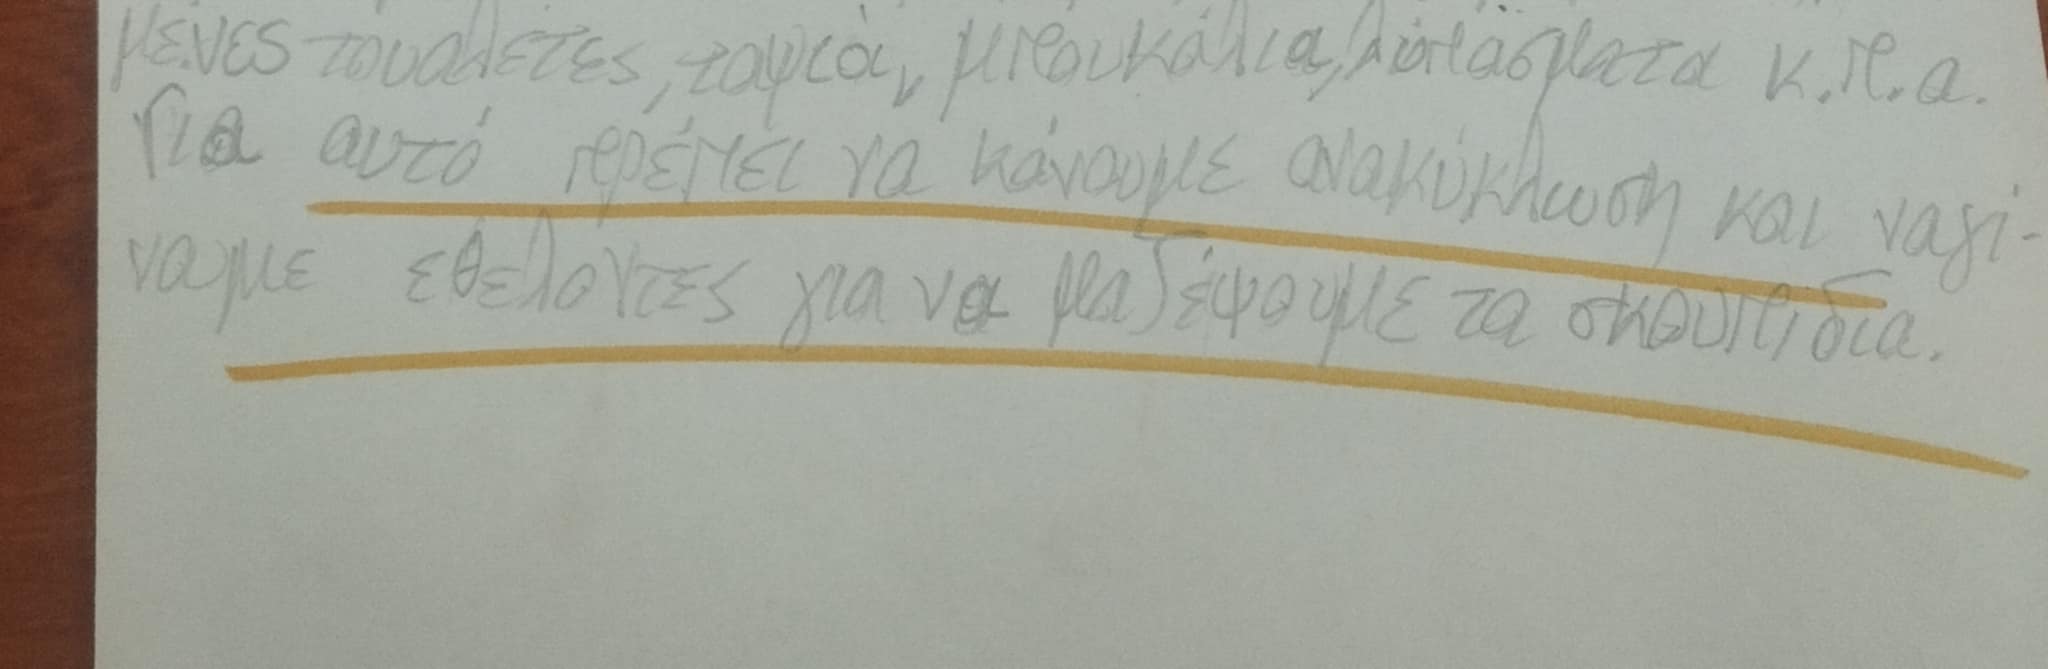 μένες τουαλέτες, ταψιά, μπουκάλια, λιπάσματα κ.π.α.
Για αυτό πρέπει να κάνουμε ανακύκλωση και ναγί-
ναμε εθελοντες για να μαζέψουμε τα σκουπίδια.